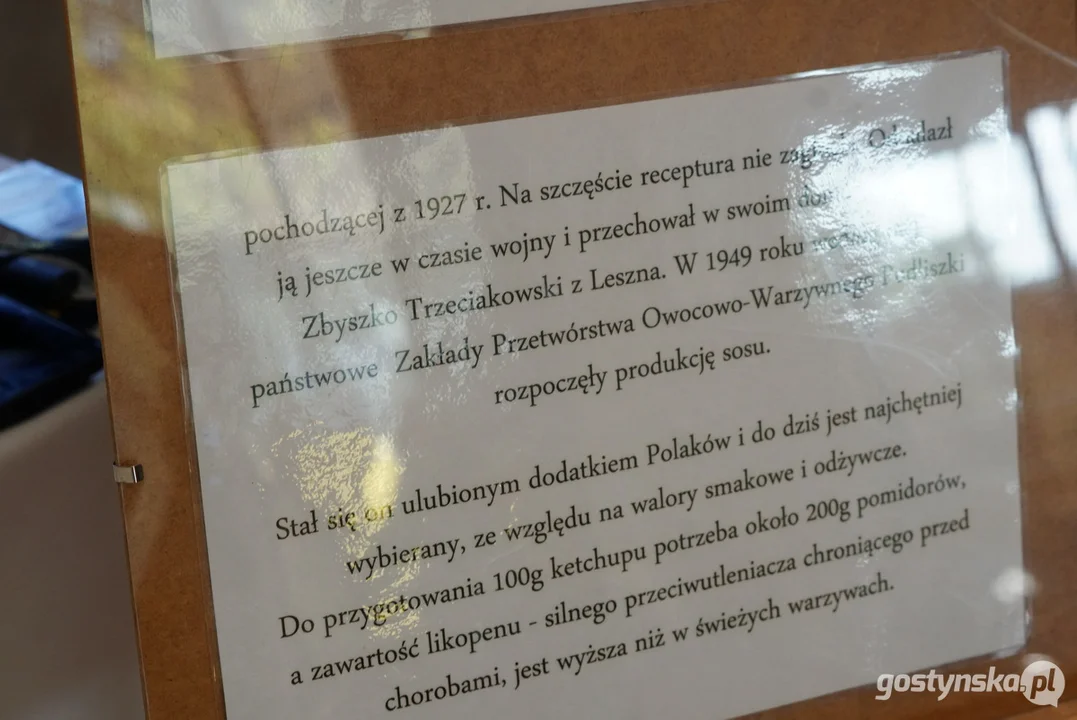 pochodzącej z 1927 r. Na szczęście receptura nie
ją jeszcze w czasie wojny i przechował w swoim
Zbyszko Trzeciakowski z Leszna. W 1949 roku
państwowe Zakłady Przetwórstwa Owocowo-Warzywnego Pudliszki
rozpoczęły produkcję sosu.
Stał się on ulubionym dodatkiem Polaków i do dziś jest najchętniej
wybierany, ze względu na walory smakowe i odżywcze.
Do przygotowania 100g ketchupu potrzeba około 200g pomidorów,
a zawartość likopenu - silnego przeciwutleniacza chroniącego przed
chorobami, jest wyższa niż w świeżych warzywach.
gostynska.pl